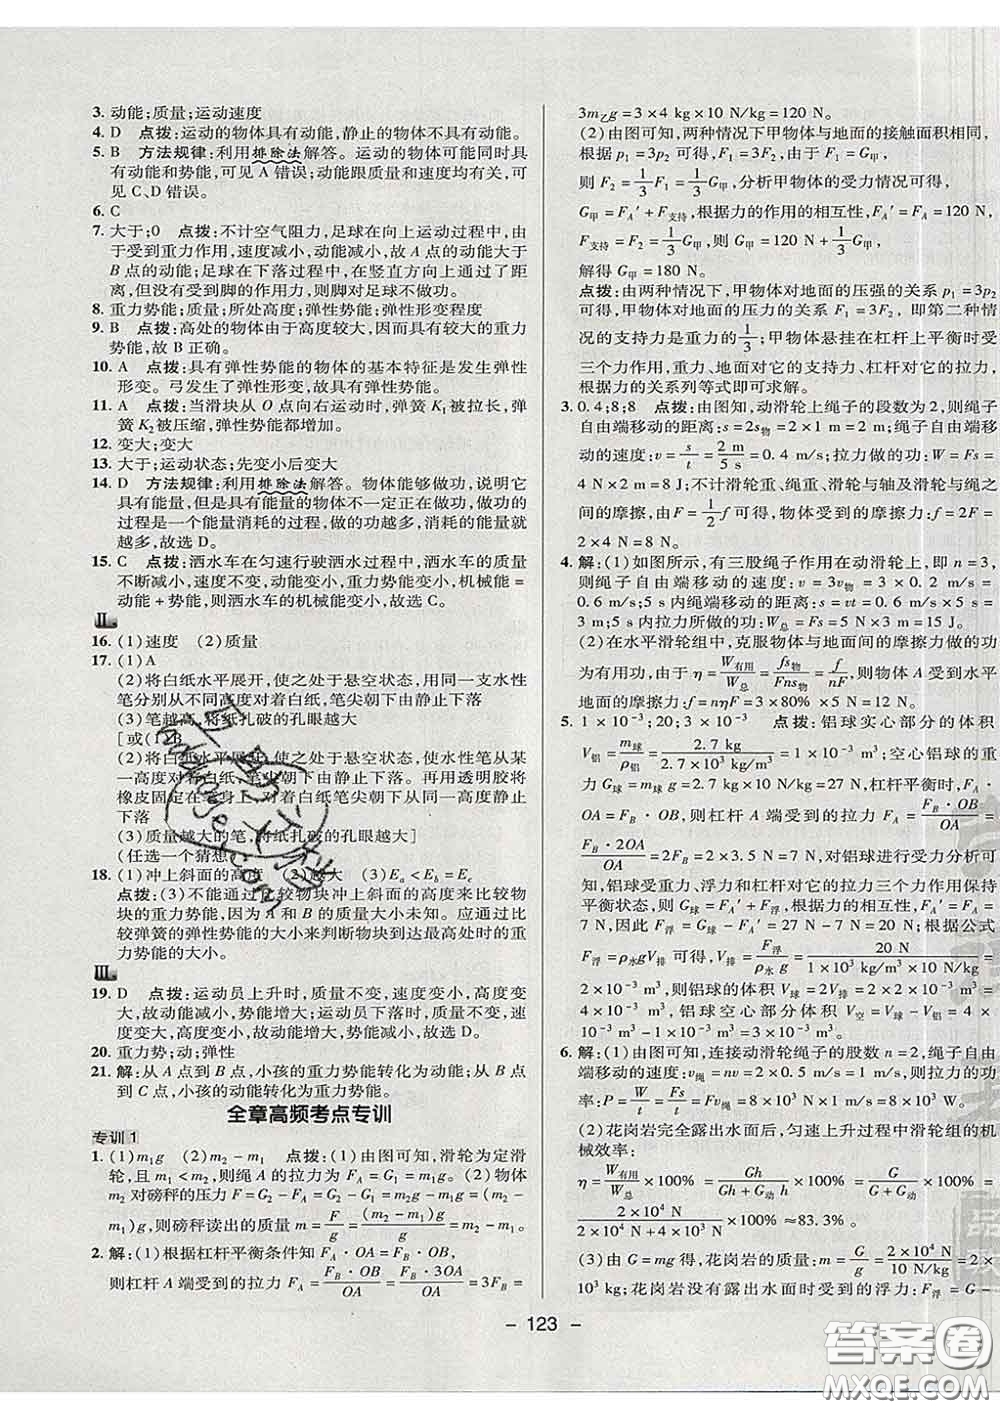 3. 动能;质量;运动速度
4. D 点拨:运动的物体具有动能,静止的物体不具有动能。
5. B 方法规律:利用排除法解答。运动的物体可能同时具
有动能和势能,可见 A 错误;动能跟质量和速度均有关,可
见 C、D 错误。
6. C
7. 大于;0 点拨:不计空气阻力,足球在向上运动过程中,由
于受到重力作用,速度减小,动能减小,故 A 点的动能大于
B 点的动能;足球在下落过程中,在竖直方向上通过了距
离,但没有受到脚的作用力,则脚对足球不做功。
8. 重力势能;质量;所处高度;弹性势能;弹性形变程度
9. B 点拨:高处的物体由于高度较大,因而具有较大的重力
势能,故 B 正确。
10. A 点拨:具有弹性势能的物体的基本特征是发生弹性
形变。弓发生了弹性形变,故具有弹性势能。
11. A 点拨:当滑块从 O 点向右运动时,弹簧 K₁被拉长,弹
簧 K₂被压缩,弹性势能都增加。
12. 变大;变大
13. 大于;运动状态;先变小后变大
14. D 方法规律:利用排除法解答。物体能够做功,说明它
具有能量,但是具有能量的物体不一定正在做功,做功的
过程是一个能量消耗的过程,做的功越多,消耗的能量就
越大,故选 D。
15. C 点拨:洒水车在匀速行驶洒水过程中,洒水车的质量
不断减小,速度不变,动能变小,重力势能变小,机械能=
动能+势能,则洒水车的机械能变小,故选 C。
Ⅱ
16. (1)速度 (2)质量
17. (1)A
(2)将白纸水平展开,使之处于悬空状态,用同一支水性
笔分别从不同高度对着白纸,笔尖朝下由静止下落
(3)笔越高,将纸扎破的孔眼越大
[或(1)B
(2)将白纸水平展开,使之处于悬空状态,使水性笔在某
一高度对着白纸,笔尖朝下由静止下落。再用透明胶将
橡皮固定在笔身上,对着白纸笔尖朝下从同一高度静止
下落
(3)质量越大的笔,将纸扎破的孔眼越大]
(任选一个猜想)
18. (1)冲上斜面的高度 (2)越大 (3)Eₐ<E_b=E_c
点拨:(3)不能通过比较物块冲上斜面的高度来比较物
块的重力势能,因为 A 和 B 的质量大小未知。应通过比
较弹簧的弹性势能的大小来判断物块到最高处时的重
力势能的大小。
Ⅲ
19. D 点拨:运动员上升时,质量不变,速度变小,高度变
大,故动能减小,势能增大;运动员下落时,质量不变,速
度变大,高度变小,故动能增大,势能减小,故选 D。
20. 重力势;动;弹性
21. 解:从 A 点到 B 点,小孩的重力势能转化为动能;从 B 点
到 C 点,小孩的动能转化为重力势能。
全章高频考点专训
专训 1
1. (1)m₁g (2)m₂-m₁ 点拨:(1)由图可知,滑轮为定滑
轮,且 m₁<m₂,则绳 A 的拉力为 F_A=G₁=m₁g;(2)物体
m₂ 对磅秤的压力 F=G₂-F_A=G₂-G₁=m₂g-m₁g=(m₂-
m₁)g,则磅秤读出的质量 m=F/g=(m₂-m₁)g/g=m₂-m₁。
2. 解:(1)根据杠杆平衡条件知 F_A·OA=F_B·OB,
则杠杆 A 端受到的拉力 F_A=F_B·OB/OA=F_B·3OA/OA=3F_B=
3m_乙g=3×4 kg×10 N/kg=120 N。
(2)由图可知,两种情况下甲物体与地面的接触面积相同,
根据 p₁=3p₂ 可得,F₁=3F₂,由于 F₁=G_甲,
则 F₂=1/3F₁=1/3G_甲,分析甲物体的受力情况可得,
G_甲=F_A′+F_支持,根据力的作用的相互性,F_A′=F_A=120 N,
F_支持=F₂=1/3G_甲,故可得 G_甲=120 N+1/3G_甲,
解得 G_甲=180 N。
点拨:由两种情况下,甲物体对地面的压强的关系 p₁=3p₂
可得,甲物体对地面的压力的关系为 F₁=3F₂,即第二种情
况的支持力是重力的1/3;甲物体悬挂在杠杆上平衡时受
三个力作用,重力、地面对它的支持力、杠杆对它的拉力,
根据力的关系列等式即可求解。
3. 0.4;8;8 点拨:由图知,动滑轮上绳子的段数为 2,则绳子
自由端移动的距离:s=2s_物=2×1 m=2 m;绳子自由端移
动的速度:v=s/t=2 m/5 s=0.4 m/s;拉力做的功:W=Fs=
4 N×2 m=8 J;不计滑轮重、绳重、滑轮与轴及滑轮与绳之
间的摩擦,由 F=1/2f 可得,物体受到的摩擦力:f=2F=
2×4 N=8 N。
4. 解:(1)如图所示,有三股绳子作用在动滑轮上,即 n=3,
则绳子自由端移动的速度:v=3v_物=3×0.2 m/s=
0.6 m/s;5 s 内绳端移动的距离:s=vt=0.6 m/s×5 s=
3 m;5 s 内拉力所做的功:W_总=Fs=5 N×3 m=15 J。
(2)在水平滑轮组中,克服物体与地面间的摩擦力做的功
为有用功,由于 η=W_有用/W_总=fs_物/Fns_物=f/nF,则物体 A 受到水平
地面的摩擦力:f=nηF=3×80%×5 N=12 N。
5. 1×10⁻³;20;3×10⁻³ 点拨:铝球实心部分的体积
V_铝=m_球/ρ_铝=2.7 kg/2.7×10³ kg/m³=1×10⁻³ m³;空心铝球的重
力 G_球=m_球g=2.7 kg×10 N/kg=27 N,杠杆平衡时,F_A·
OA=F_B·OB,则杠杆 A 端受到的拉力 F_A=F_B·OB/OA=
F_B·2OA/OA=2F_B=2×3.5 N=7 N,对铝球进行受力分析可
知,铝球受重力、浮力和杠杆对它的拉力三个力作用保持
平衡状态,则 G_球=F_A′+F_浮,根据力的相互性,F_A′=F_A=
7 N,因此 F_浮=G_球-F_A′=27 N-7 N=20 N;根据公式
F_浮=ρ_水gV_排 可得,V_排=F_浮/ρ_水g=20 N/1×10³ kg/m³×10 N/kg=
2×10⁻³ m³,则铝球的体积 V_球=2V_排=2×2×10⁻³ m³=
4×10⁻³ m³,铝球空心部分体积 V_空=V_球-V_铝=4×
10⁻³ m³-1×10⁻³ m³=3×10⁻³ m³。
6. 解:(1)由图可知,连接动滑轮绳子的股数 n=2,绳子自由
端的速度:v_绳=nv=2×0.5 m/s=1 m/s,则拉力的功
率:P=W/t=Fs/t=Fv_绳=
(2)花岗岩完全露出水面后,匀速上升过程中滑轮组的机
械效率:
η=W_有用/W_总×100%=Gh/Gh+G_动h×100%=G/G+G_动×100%=
2×10⁴ N/2×10⁴ N+4×10³ N×100%≈83.3%。
(3)由 G=mg 得,花岗岩的质量:m=G/g=2×10⁴ N/10 N/kg=2×
10³ kg;花岗岩没有露出水面时受到的浮力:F_浮=G-
- 123 -
答案圈
MXQE.COM